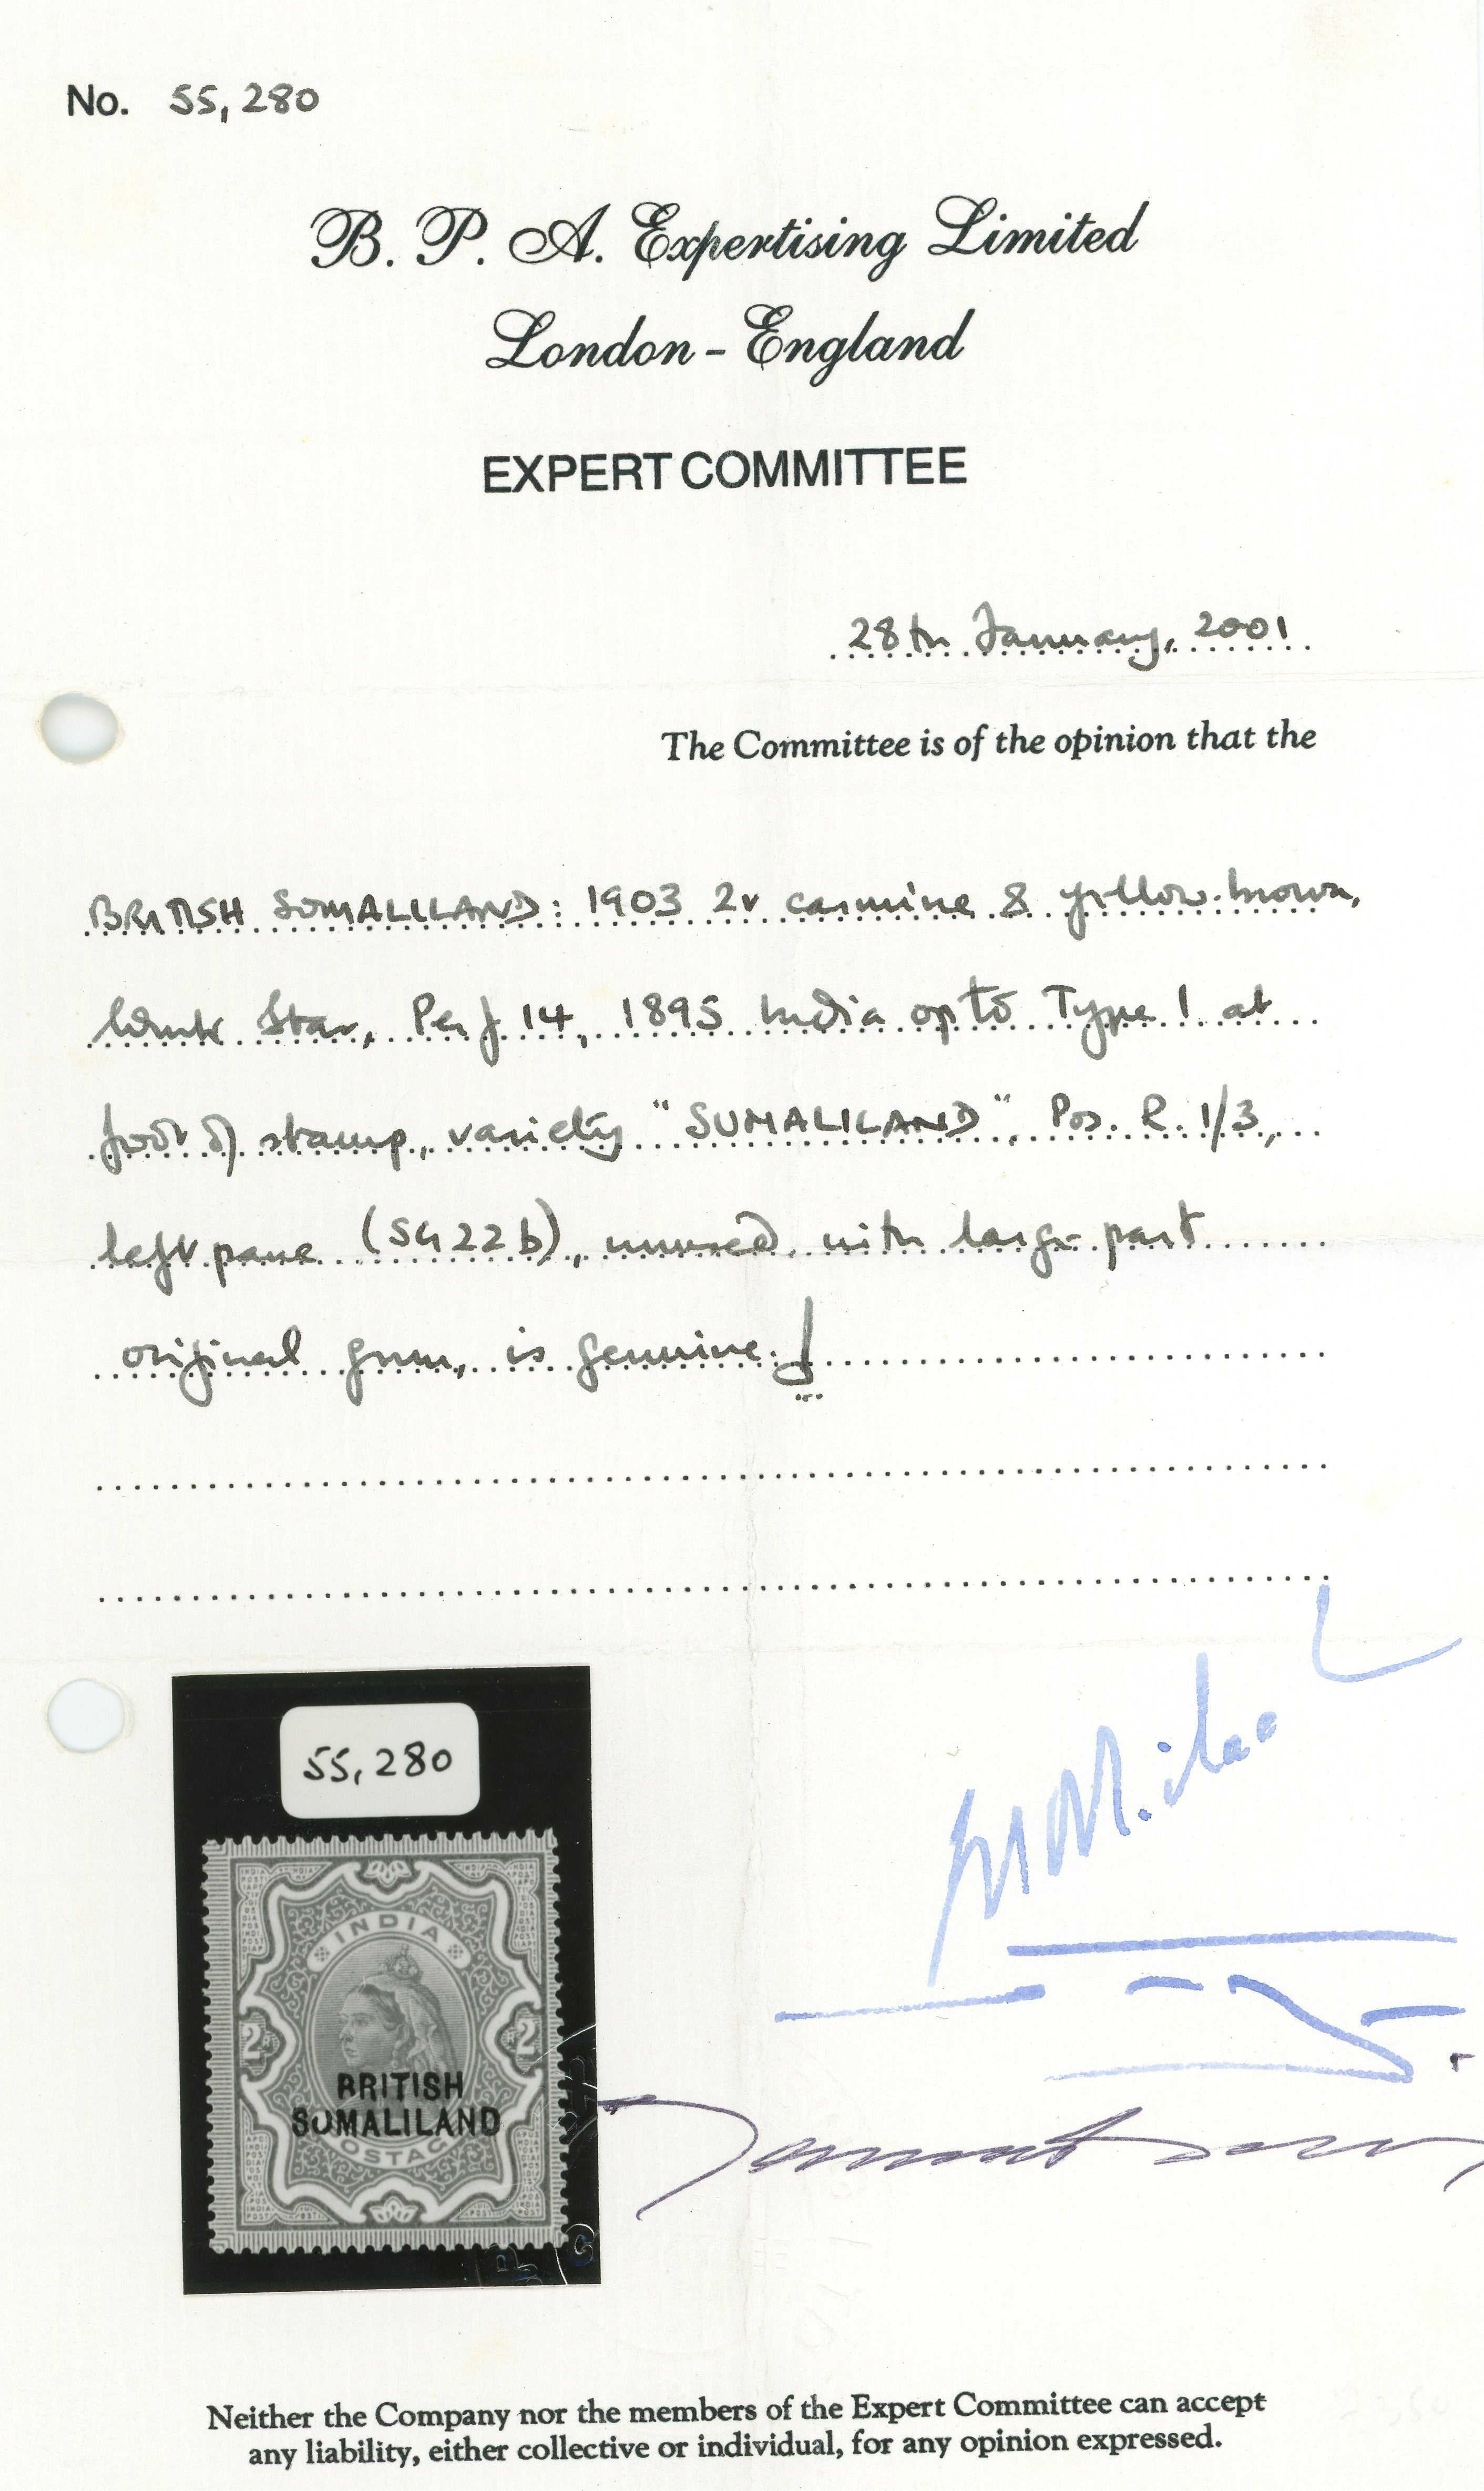 No. 55,280
B. P. A. Expertising Limited
London - England
EXPERT COMMITTEE
28th January, 2001
The Committee is of the opinion that the
BRITISH SOMALILAND: 1903 2r carmine & yellow-brown,
Wmk Star, Perf 14, 1895 India optd Type 1 at
foot of stamp, variety "SUMALILAND", Pos. R. 1/3,
left pane (SG 22b), unused, with large part
original gum, is genuine.
55,280
INDIA
2
2
BRITISH
SUMALILAND
POSTAGE
Neither the Company nor the members of the Expert Committee can accept
any liability, either collective or individual, for any opinion expressed.